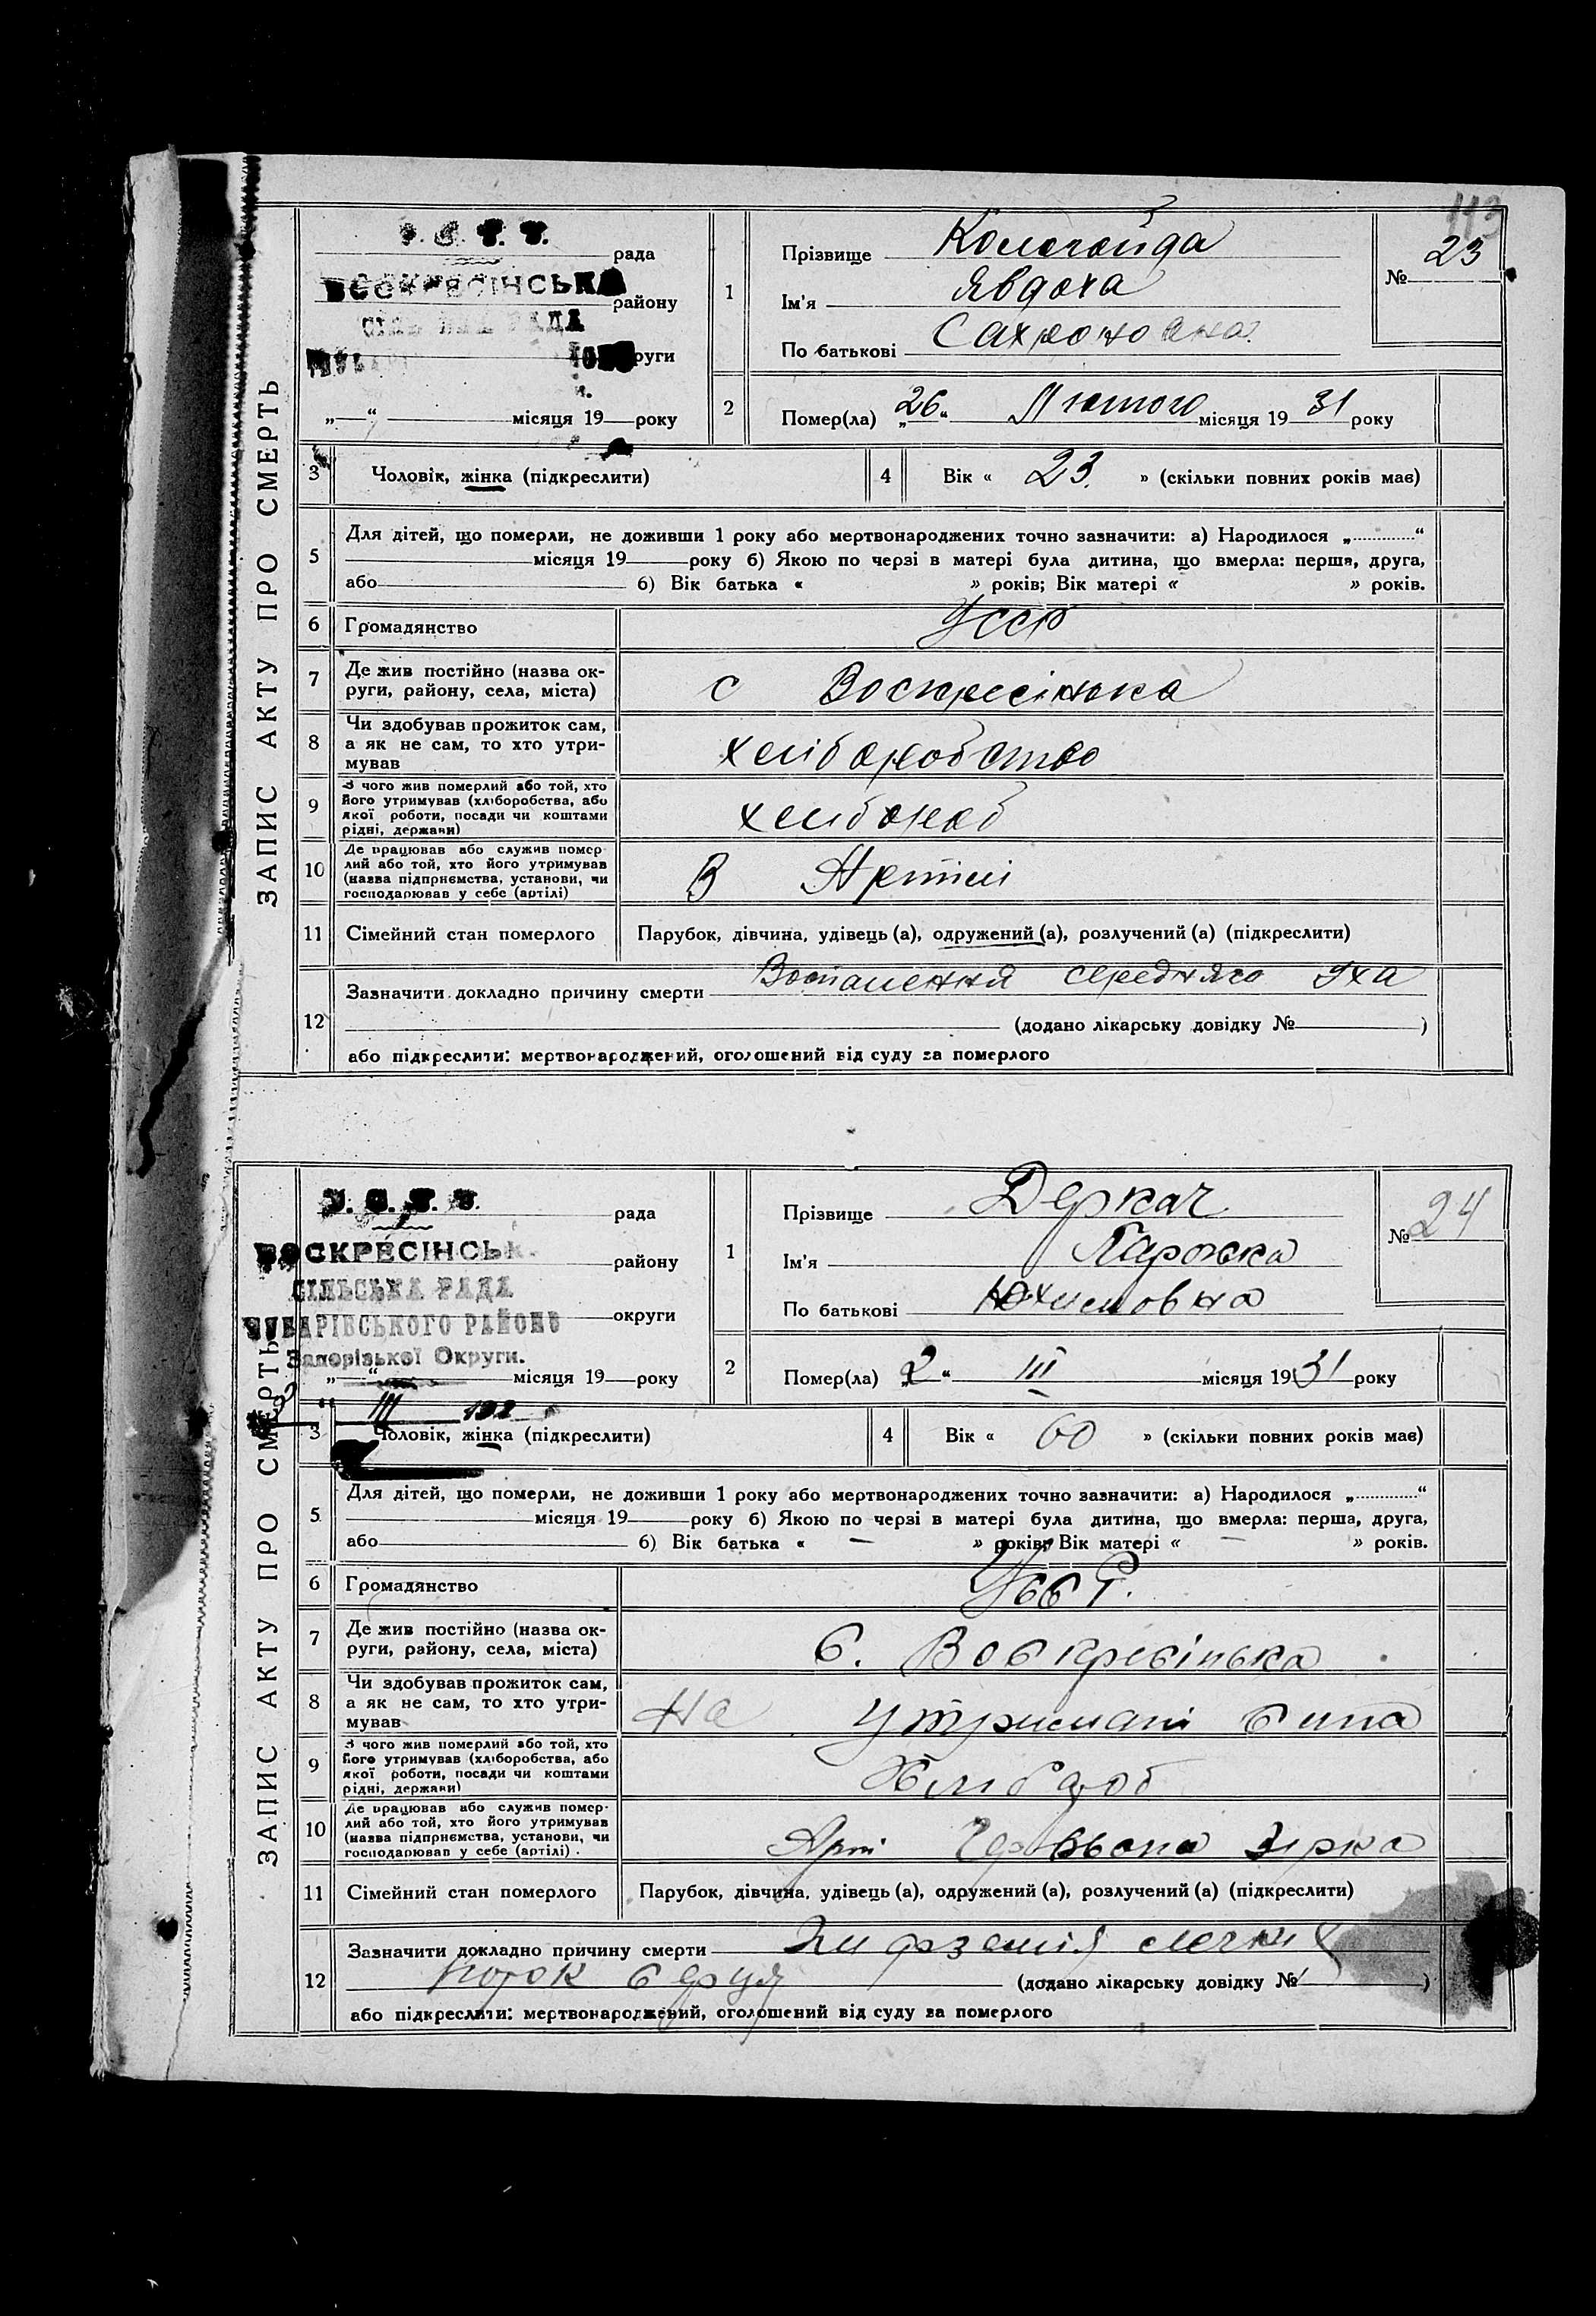 113
У. С. Р. Р.
рада
ВОСКРЕСІНСЬКА
району
РАДА
округи
„ “ місяця 19 року
ЗАПИС АКТУ ПРО СМЕРТЬ
1
Прізвище Кологойда
Ім'я Явдоха
По батькові Сахроновна
№ 23
2
Помер(ла) „26“ Лютого місяця 1931 року
3
Чоловік, жінка (підкреслити)
4
Вік « 23 » (скільки повних років має)
5
Для дітей, що померли, не доживши 1 року або мертвонароджених точно зазначити: а) Народилося „ “
місяця 19 року б) Якою по черзі в матері була дитина, що вмерла: перша, друга,
або б) Вік батька « » років; Вік матері « » років.
6
Громадянство
УССР
7
Де жив постійно (назва ок-
руги, району, села, міста)
с Воскресінька
8
Чи здобував прожиток сам,
а як не сам, то хто утри-
мував
хліборобство
9
З чого жив померлий або той, хто
його утримував (хліборобства, або
якої роботи, посади чи коштами
рідні, держави)
хлібороб
10
Де працював або служив помер-
лий або той, хто його утримував
(назва підприємства, установи, чи
господарював у себе (артілі)
В Артілі
11
Сімейний стан померлого
Парубок, дівчина, удівець (а), одружений (а), розлучений (а) (підкреслити)
12
Зазначити докладно причину смерти Воспаления середняго уха
(додано лікарську довідку № )
або підкреслити: мертвонароджений, оголошений від суду за померлого
У. С. Р. Р.
рада
ВОСКРЕСІНСЬК
району
СІЛЬСЬКА РАДА
ЧУБАРІВСЬКОГО РАЙОНУ
округи
Запорізької Округи.
„ “ місяця 19 року
III 192
ЗАПИС АКТУ ПРО СМЕРТЬ
1
Прізвище Деркач
Ім'я Парожка
По батькові Юхимовна
№ 24
2
Помер(ла) 2 “ III місяця 1931 року
3
Чоловік, жінка (підкреслити)
4
Вік « 60 » (скільки повних років має)
5
Для дітей, що померли, не доживши 1 року або мертвонароджених точно зазначити: а) Народилося „ “
місяця 19 року б) Якою по черзі в матері була дитина, що вмерла: перша, друга,
або б) Вік батька « — » років; Вік матері « — » років.
6
Громадянство
УССР.
7
Де жив постійно (назва ок-
руги, району, села, міста)
С. Воскресінька
8
Чи здобував прожиток сам,
а як не сам, то хто утри-
мував
На утримані сина
9
З чого жив померлий або той, хто
його утримував (хліборобства, або
якої роботи, посади чи коштами
рідні, держави)
Хлібороб
10
Де працював або служив помер-
лий або той, хто його утримував
(назва підприємства, установи, чи
господарював у себе (артілі)
Арт Червьона Зірка
11
Сімейний стан померлого
Парубок, дівчина, удівець (а), одружений (а), розлучений (а) (підкреслити)
12
Зазначити докладно причину смерти
порок серця (додано лікарську довідку № )
або підкреслити: мертвонароджений, оголошений від суду за померлого